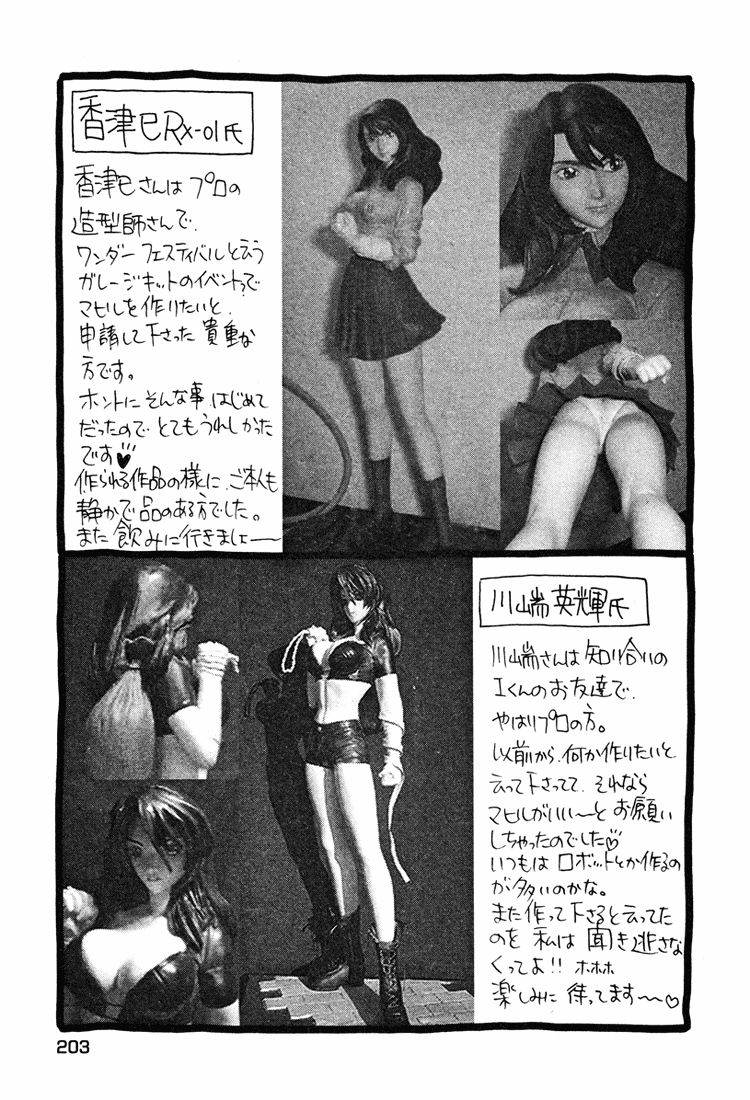 香津巳RX-01氏
香津巳さんは プロの
造型師さんで、
ワンダーフェスティバルと云う
ガレージキットのイベント?で
マヒルを作りたいと、
申請して下さった 貴重な
方です。
ホントに そんな事 はじめて
だったので とてもうれしかった
です♥
作られる作品の様に、ご本人も
静かで 品のある方でした。
また 飲みに行きましょ――
川端英輝氏
川端さんは 知り合いの
Iくんのお友達で、
やはりプロの方。
以前から、何か作りたいと
云って下さってて、それなら
マヒルがいい〜と お願い
しちゃったのでした♡
いつもは ロボットとか作るの
が多いのかな。
また作って下さると云ってた
のを 私は 聞き逃さな
くってよ!! ホホホ
楽しみに 待ってます〜♡
203